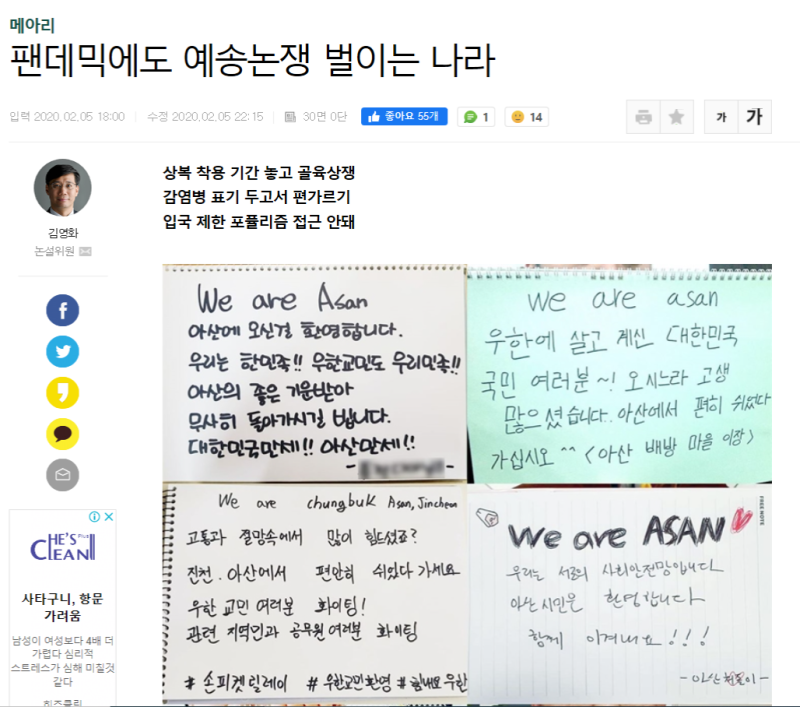 메아리
팬데믹에도 예송논쟁 벌이는 나라
입력 2020.02.05 18:00
수정 2020.02.05 22:15
30면 0단
좋아요 55개
1
14
가
가
김영화
논설위원
상복 착용 기간 놓고 골육상쟁
감염병 표기 두고서 편가르기
입국 제한 포퓰리즘 접근 안돼
We are Asan
아산에 오신걸 환영합니다.
우리는 한민족!! 우한교민도 우리민족!!
아산의 좋은 기운받아
무사히 돌아가시길 빕니다.
대한민국만세!! 아산만세!!
We are asan
우한에 살고 계신 대한민국
국민 여러분~! 오시느라 고생
많으셨습니다. 아산에서 편히 쉬었다
가십시오 ^^ <아산 배방 마을 이장>
We are chungbuk Asan, Jincheon
고통과 절망속에서 많이 힘드셨죠?
진천. 아산에서 편안히 쉬었다 가세요
우한 교민 여러분 화이팅!
관련 지역민과 공무원 여러분 화이팅
# 손피켓릴레이 # 우한교민환영 # 힘내요 우한
FREE NOTE
We are ASAN
우리는 서로의 사회안전망입니다
아산 시민은 환영합니다
함께 이겨내요!!!
HE'S Plus
CLEAN
사타구니, 항문
가려움
남성이 여성보다 4배 더
가렵다 심리적
스트레스가 심해 미칠것
같다
히즈클린